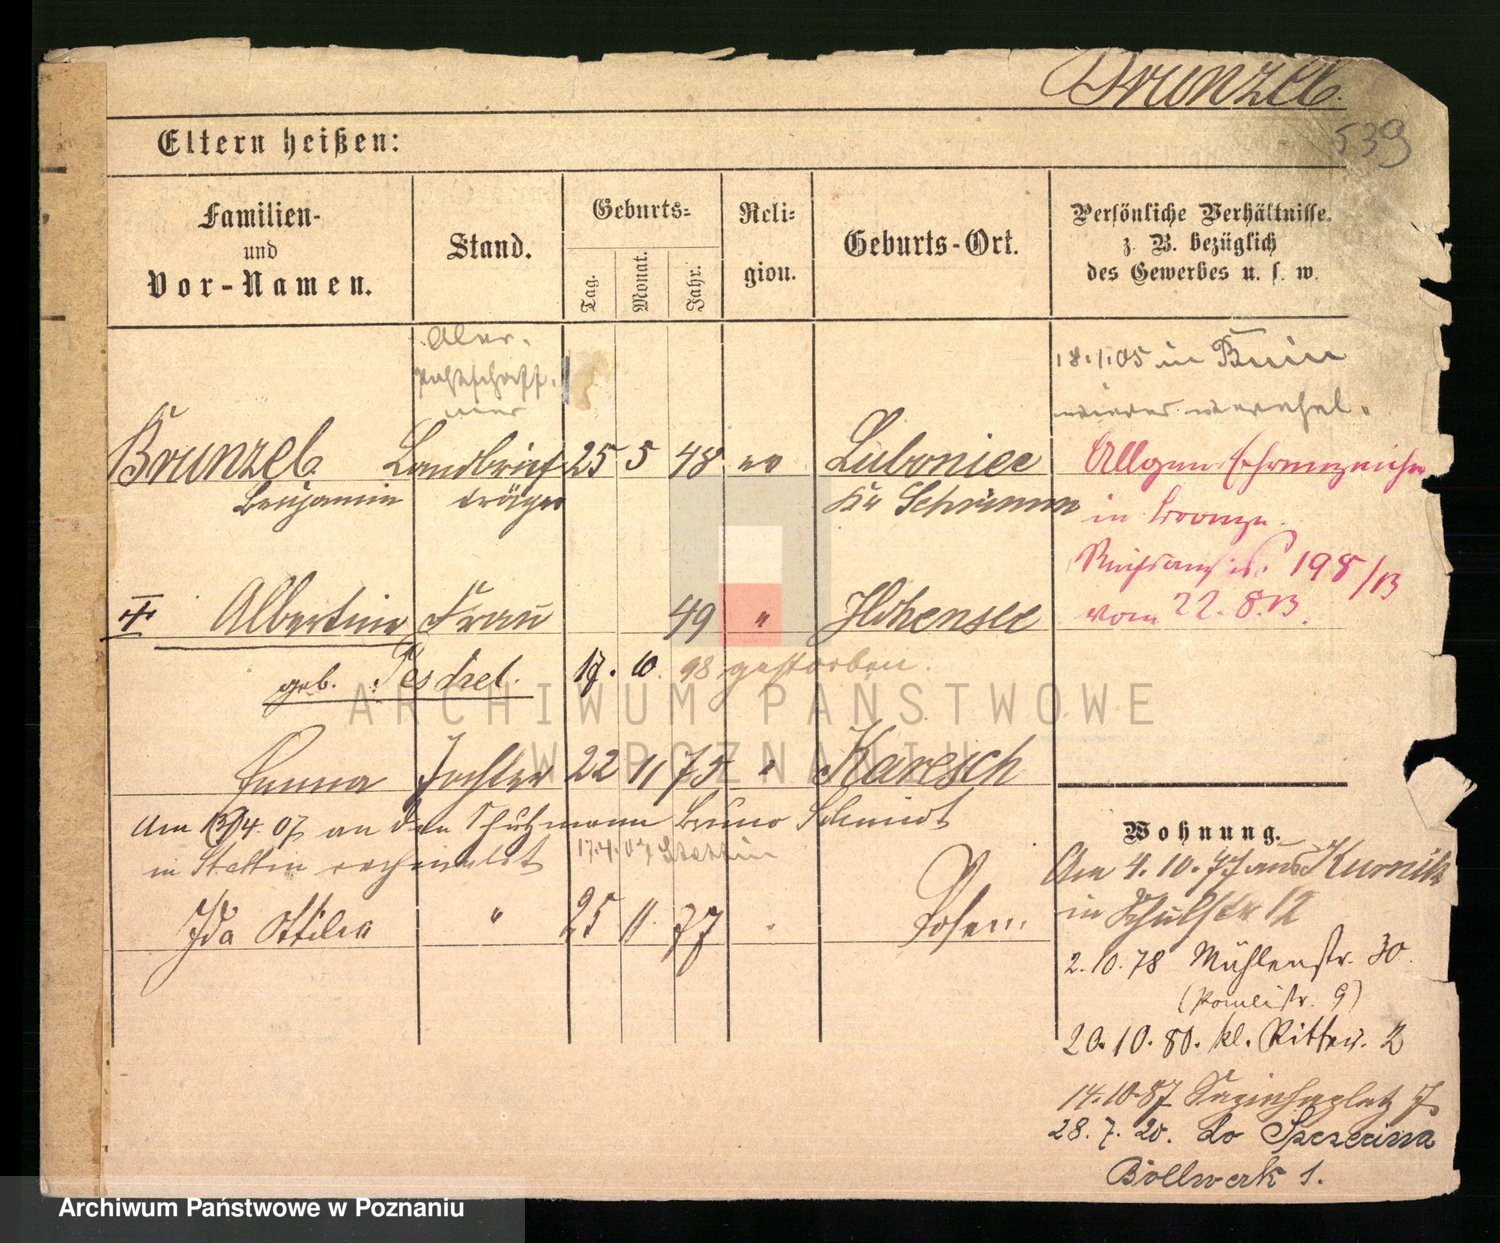 Brunzel.
539
Eltern heißen:
Familien-
und
Vor-Namen.
Stand.
Geburts-
Tag.
Monat.
Jahr.
Reli-
gion.
Geburts-Ort.
Persönliche Verhältnisse,
z. B. bezüglich
des Gewerbes u. s. w.
18.1.05 in
wieder
Brunzel Landbrief 25 5 48 ev Luboniec
Benjamin träger Kr Schrimm
Allgem. Ehrenzeichen
in Bronze.
198/13
vom 22.8.13.
Albertine Frau 49 " Hohensee
geb. Peschel. 17. 10. 98 gestorben.
Emma Tochter 22 11 75 " Karesch
Am 13/4.07 an den Schutzmann Bruno Schmidt
in Stettin verheiratet 17.4.07 Stettin
Ida Ottilie " 25 11 77 " Posen
Wohnung.
Am 4.10.77 aus Kurnik
in Schulstr 12
2.10.78 Mühlenstr. 30.
20.10.80. kl. Ritterst. 2
14.10.87 Sapiehaplatz 7
28.7.20. do Szczecina
Bollwerk 1.
ARCHIWUM PAŃSTWOWE
W POZNANIU
Archiwum Państwowe w Poznaniu